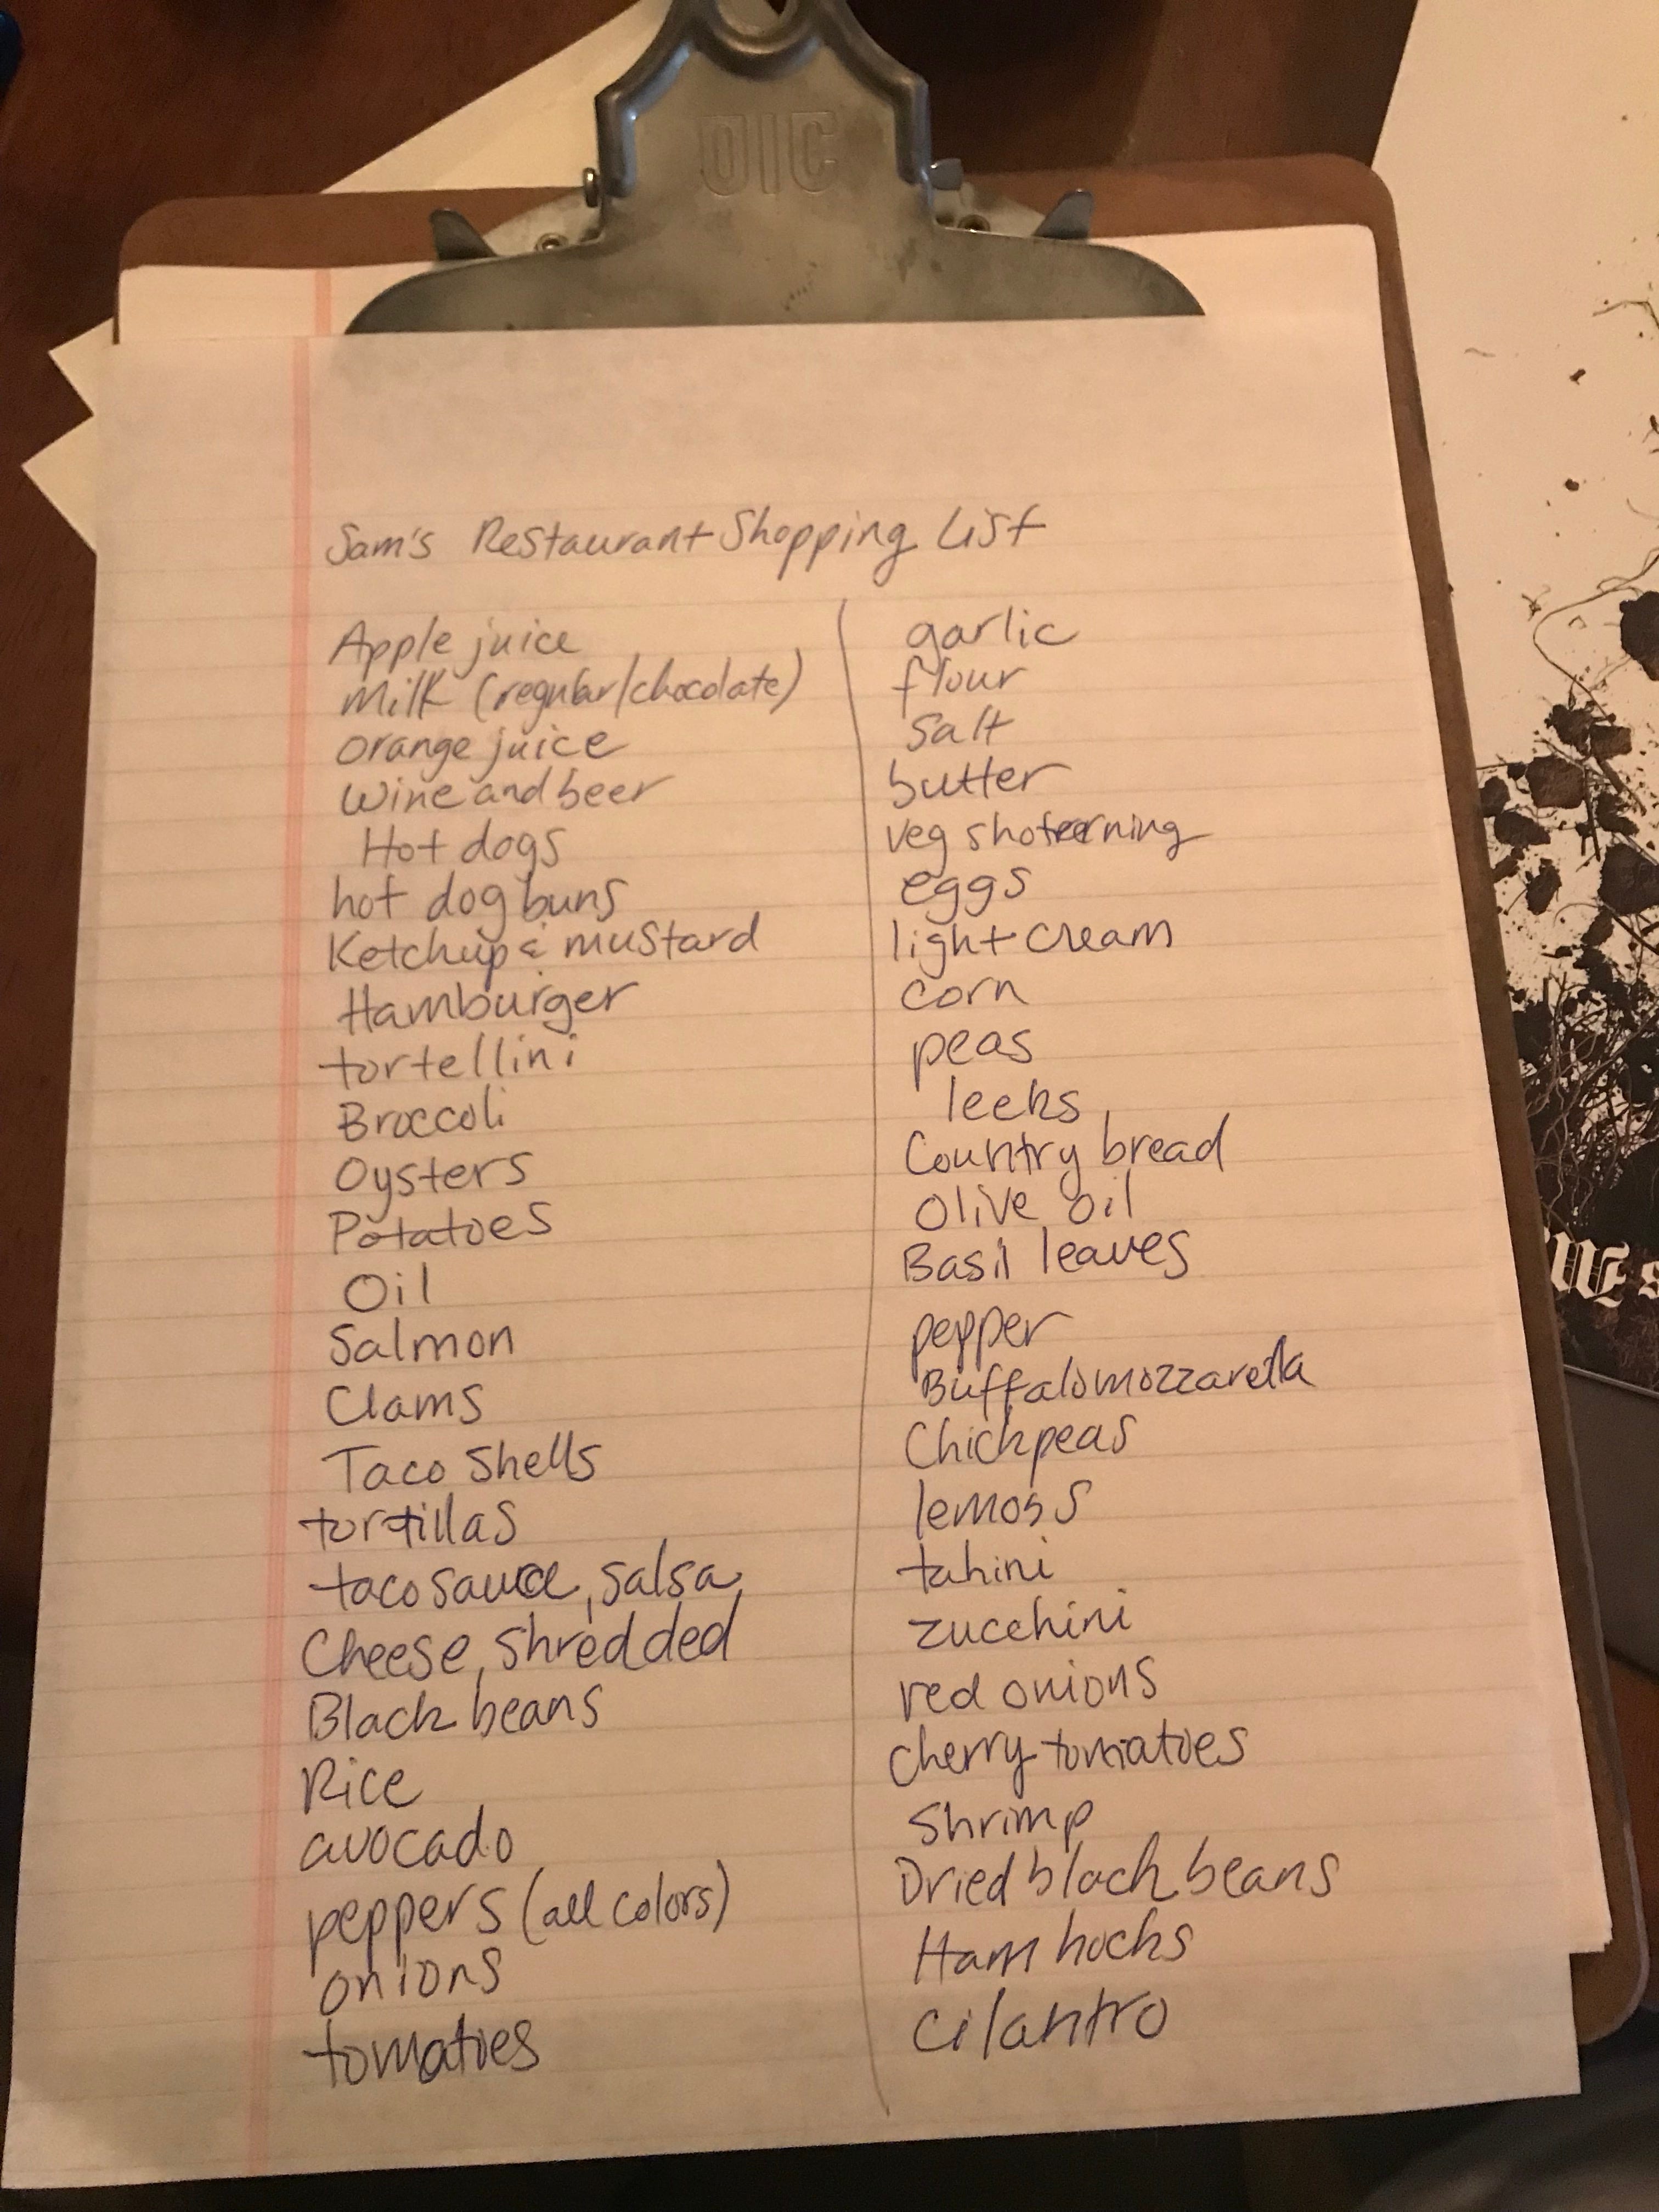 OIC
Sam's Restaurant Shopping List
Apple juice
Milk (regular/chocolate)
orange juice
Wine and beer
Hot dogs
hot dog buns
Ketchup & mustard
Hamburger
tortellini
Broccoli
Oysters
Potatoes
Oil
Salmon
Clams
Taco Shells
tortillas
taco sauce, salsa
Cheese, shredded
Black beans
Rice
avocado
peppers (all colors)
onions
tomatoes
garlic
flour
Salt
butter
veg
eggs
light cream
corn
peas
leeks
Country bread
Olive oil
Basil leaves
pepper
Buffalo mozzarella
Chickpeas
lemons
tahini
zucchini
red onions
Cherry tomatoes
Shrimp
Dried black beans
Ham hocks
Cilantro